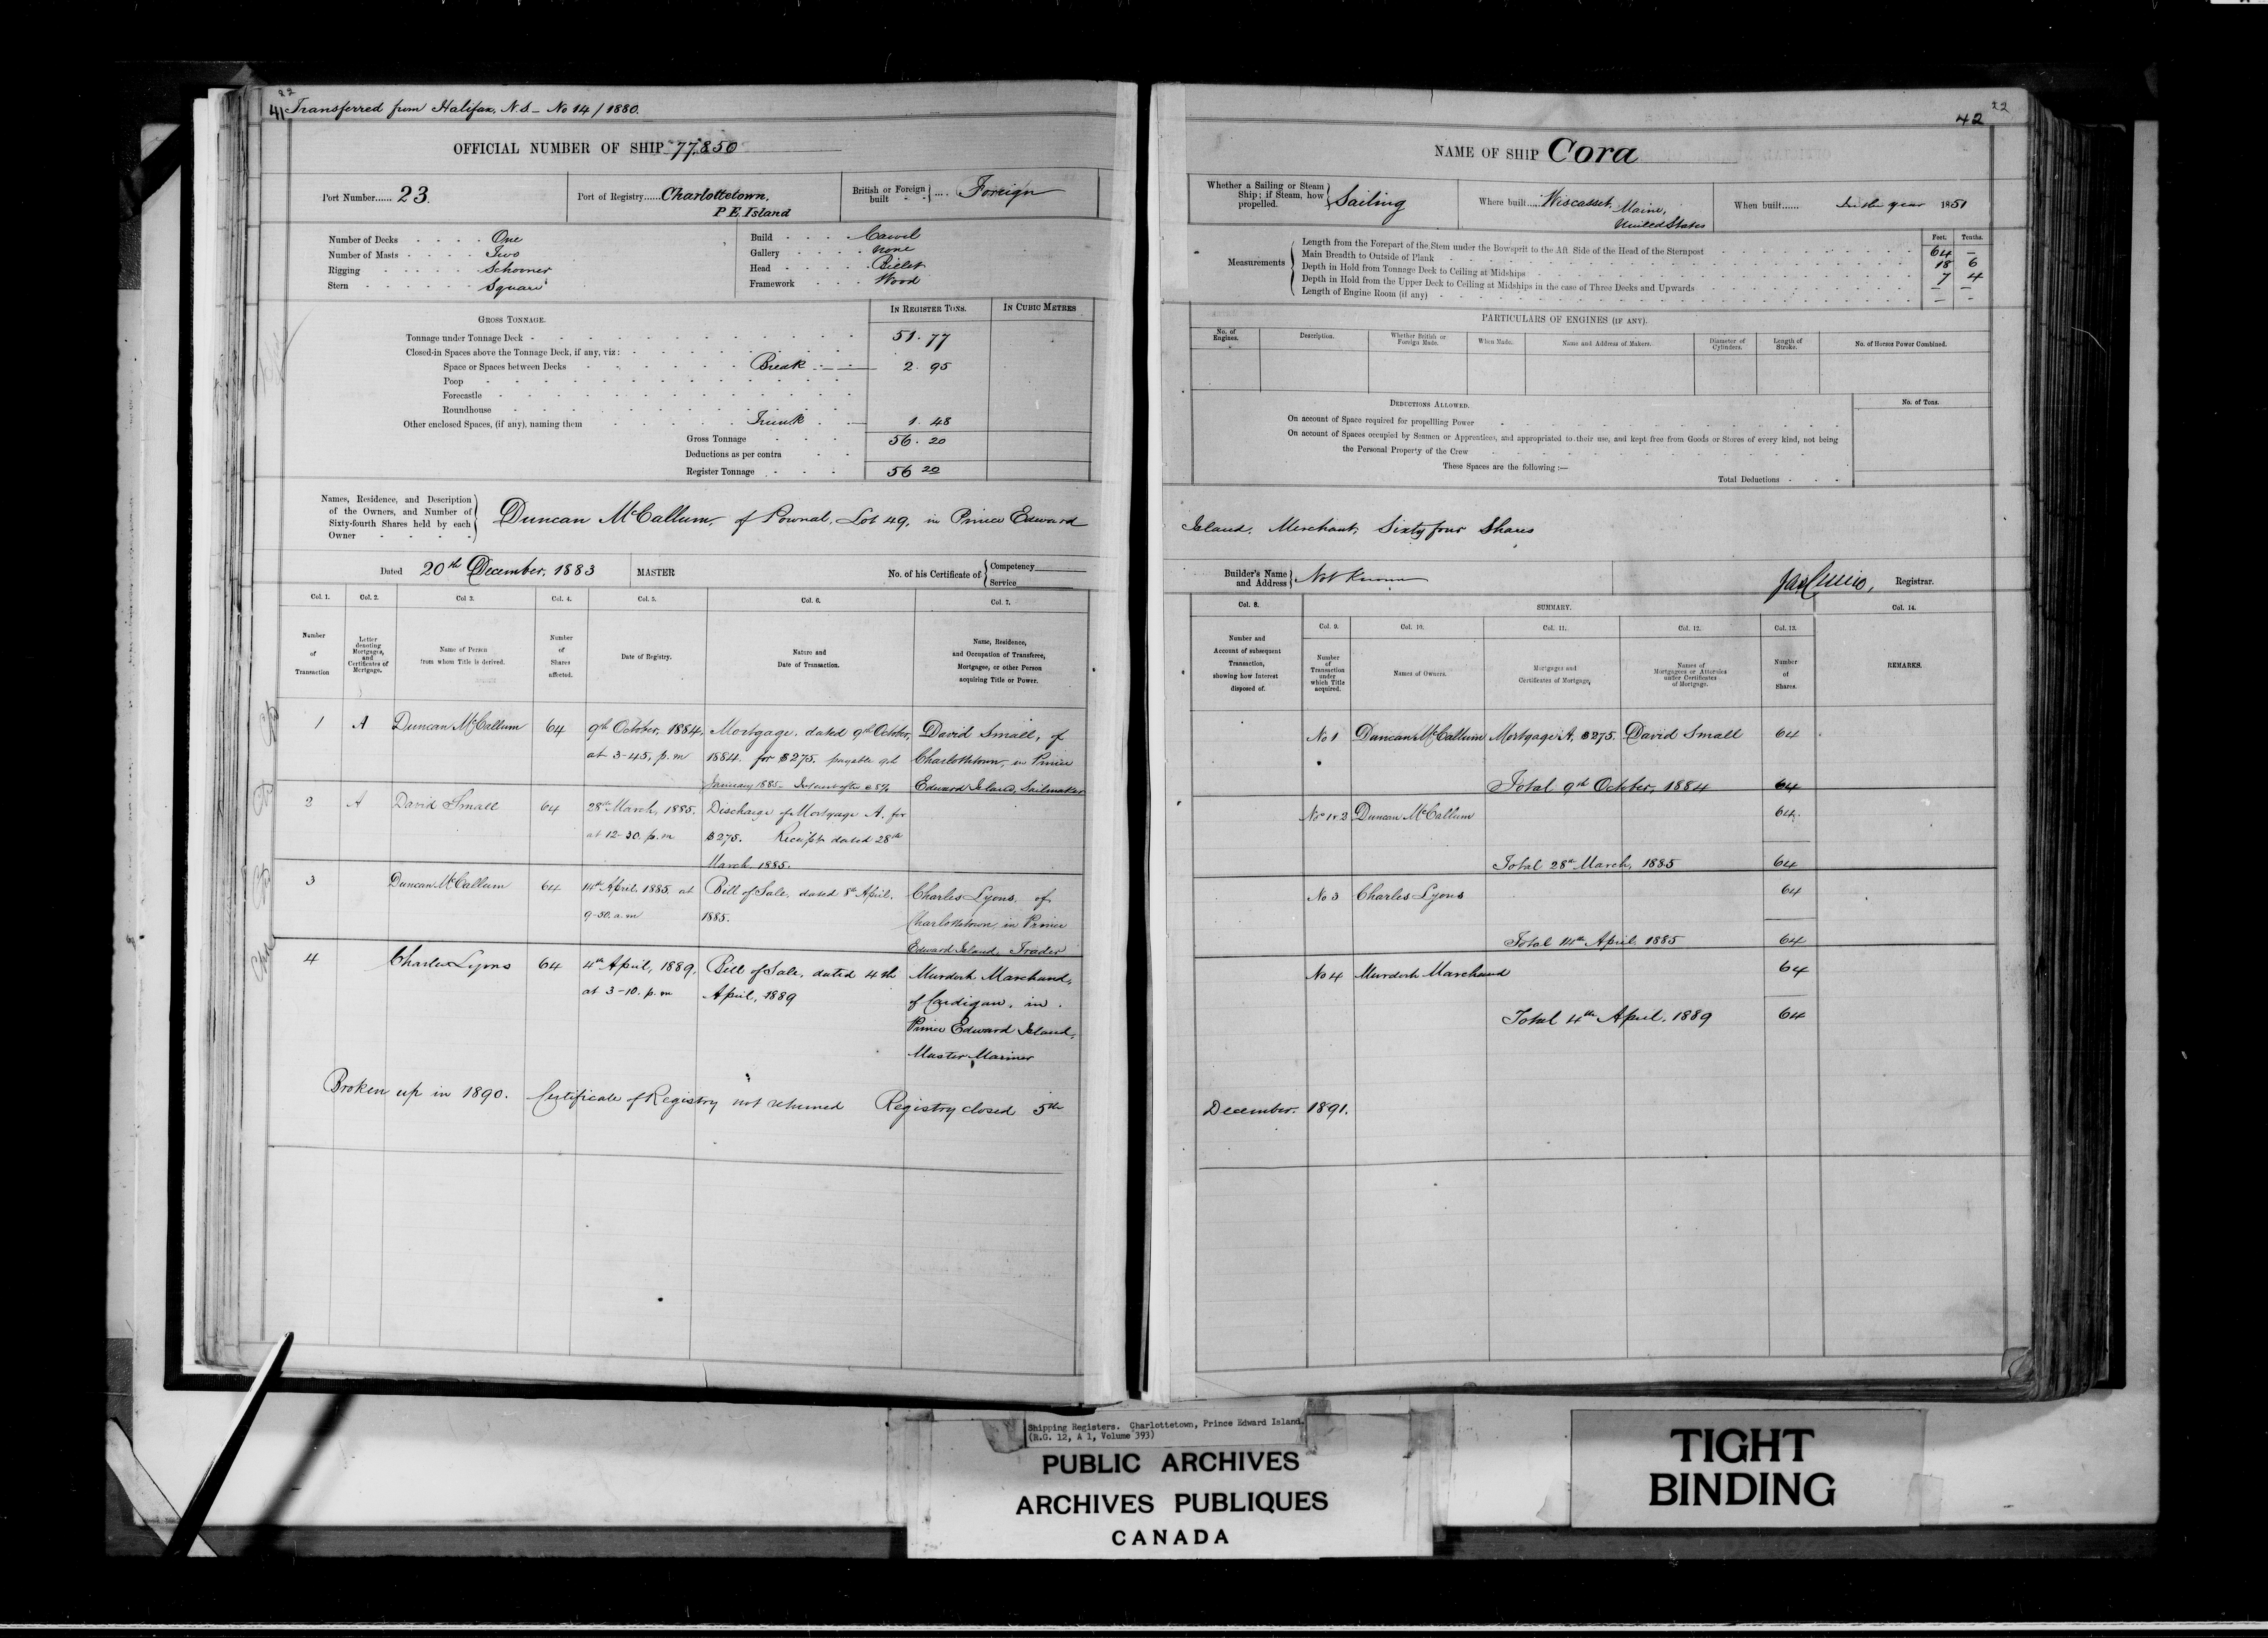 22
41 Transferred from Halifax, N.S - No 14 / 1880.
OFFICIAL NUMBER OF SHIP 77,850
Port Number...... 23.
Port of Registry...... Charlottetown,
P E Island
British or Foreign built .... Foreign
Number of Decks One
Number of Masts Two
Rigging Schooner
Stern Square
Build Carvel
Gallery None
Head Billet
Framework Wood
GROSS TONNAGE.
IN REGISTER TONS. IN CUBIC METRES
Tonnage under Tonnage Deck 51.77
Closed-in Spaces above the Tonnage Deck, if any, viz:
Space or Spaces between Decks Break 2.95
Poop
Forecastle
Roundhouse
Other enclosed Spaces, (if any), naming them Trunk 1.48
Gross Tonnage 56.20
Deductions as per contra
Register Tonnage 56 20
Names, Residence, and Description
of the Owners, and Number of
Sixty-fourth Shares held by each
Owner
Duncan McCallum, of Pownal, Lot 49, in Prince Edward
Dated 20th December, 1883 MASTER No. of his Certificate of Competency
Service
Col. 1. Col. 2. Col 3. Col. 4. Col. 5. Col. 6. Col. 7.
Number of Transaction
Letter denoting Mortgages, and Certificates of Mortgage.
Name of Person from whom Title is derived.
Number of Shares affected.
Date of Registry.
Nature and Date of Transaction.
Name, Residence, and Occupation of Transferee, Mortgagee, or other Person acquiring Title or Power.
1 A Duncan McCallum 64 9th October, 1884, Mortgage, dated 9th October, David Small, of
at 3-45, p.m 1884. for $275. payable 9th Charlottetown, in Prince
January 1885 - Edward Island, Sailmaker
2 A David Small 64 28th March, 1885. Discharge of Mortgage A. for
at 12-30. p.m $275. Receipt dated 28th
March, 1885.
3 Duncan McCallum 64 14th April, 1885 at Bill of Sale, dated 8th April, Charles Lyons, of
9-30. a.m 1885. Charlottetown, in Prince
Edward Island, Trader
4 Charles Lyons 64 4th April, 1889, Bill of Sale, dated 4th Murdoch Marchand,
at 3-10. p.m April, 1889 of Cardigan, in
Prince Edward Island,
Master Mariner
Broken up in 1890. Certificate of Registry not returned Registry closed 5th
22
42
NAME OF SHIP Cora
Whether a Sailing or Steam
Ship; if Steam, how
propelled.
Sailing
Where built.... Wiscasset, Maine,
United States
When built...... In the year 1851
Feet. Tenths.
Measurements
Length from the Forepart of the Stem under the Bowsprit to the Aft Side of the Head of the Sternpost 64 -
Main Breadth to Outside of Plank 18 6
Depth in Hold from Tonnage Deck to Ceiling at Midships 7 4
Depth in Hold from the Upper Deck to Ceiling at Midships in the case of Three Decks and Upwards - -
Length of Engine Room (if any) - -
PARTICULARS OF ENGINES (IF ANY).
No. of Engines. Description. Whether British or Foreign Made. When Made. Name and Address of Makers. Diameter of Cylinders. Length of Stroke. No. of Horses Power Combined.
DEDUCTIONS ALLOWED. No. of Tons.
On account of Space required for propelling Power
On account of Spaces occupied by Seamen or Apprentices, and appropriated to their use, and kept free from Goods or Stores of every kind, not being
the Personal Property of the Crew
These Spaces are the following :—
Total Deductions
Island, Merchant, Sixty four Shares
Builder's Name
and Address
Not Known
Registrar.
Col. 8. SUMMARY. Col. 14.
Col. 9. Col. 10. Col. 11. Col. 12. Col. 13.
Number and Account of subsequent Transaction, showing how Interest disposed of.
Number of Transaction under which Title acquired.
Names of Owners.
Mortgages and Certificates of Mortgage,
Names of Mortgagees or Attornies under Certificates of Mortgage.
Number of Shares.
REMARKS.
No 1 Duncan McCallum Mortgage A, $275. David Small 64
Total 9th October, 1884 64
Nos 1 & 2 Duncan McCallum 64
Total 28th March, 1885 64
No 3 Charles Lyons 64
Total 14th April, 1885 64
No 4 Murdoch Marchand 64
Total 4th April, 1889 64
December. 1891.
Shipping Registers. Charlottetown, Prince Edward Island.
(R.G. 12, A 1, Volume 393)
PUBLIC ARCHIVES
ARCHIVES PUBLIQUES
CANADA
TIGHT
BINDING